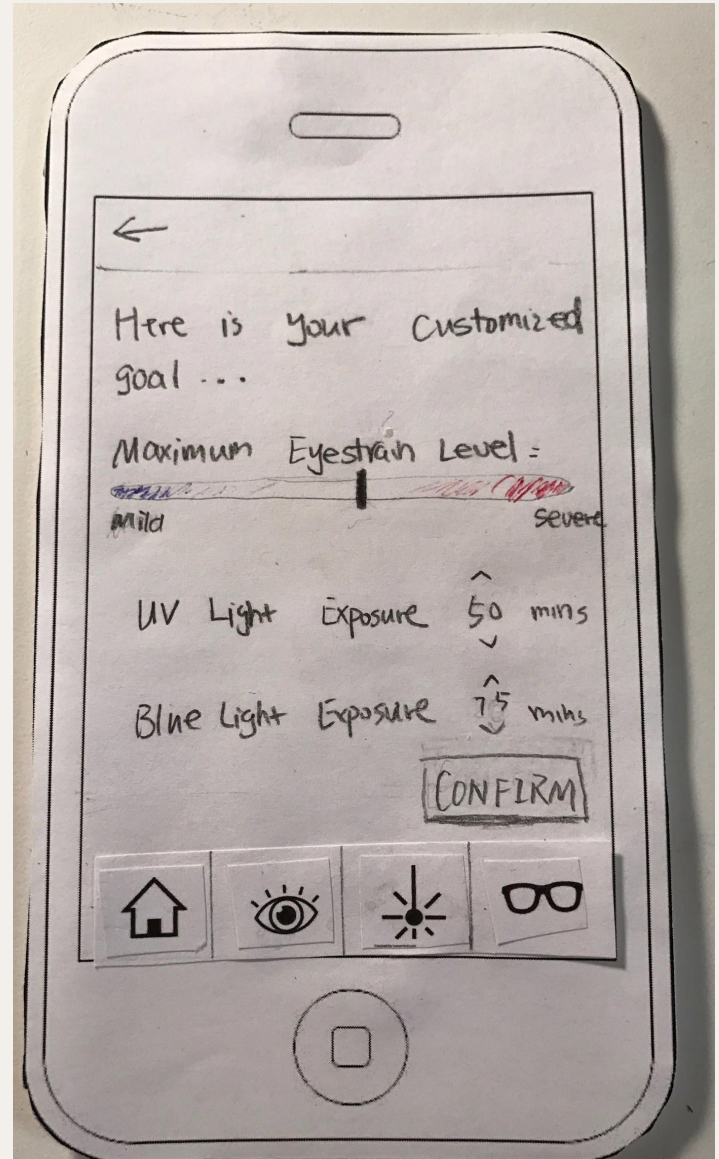 Here is your customized
goal ...
Maximum Eyestrain Level:
Mild severe
UV Light Exposure 50 mins
Blue Light Exposure 75 mins
CONFIRM